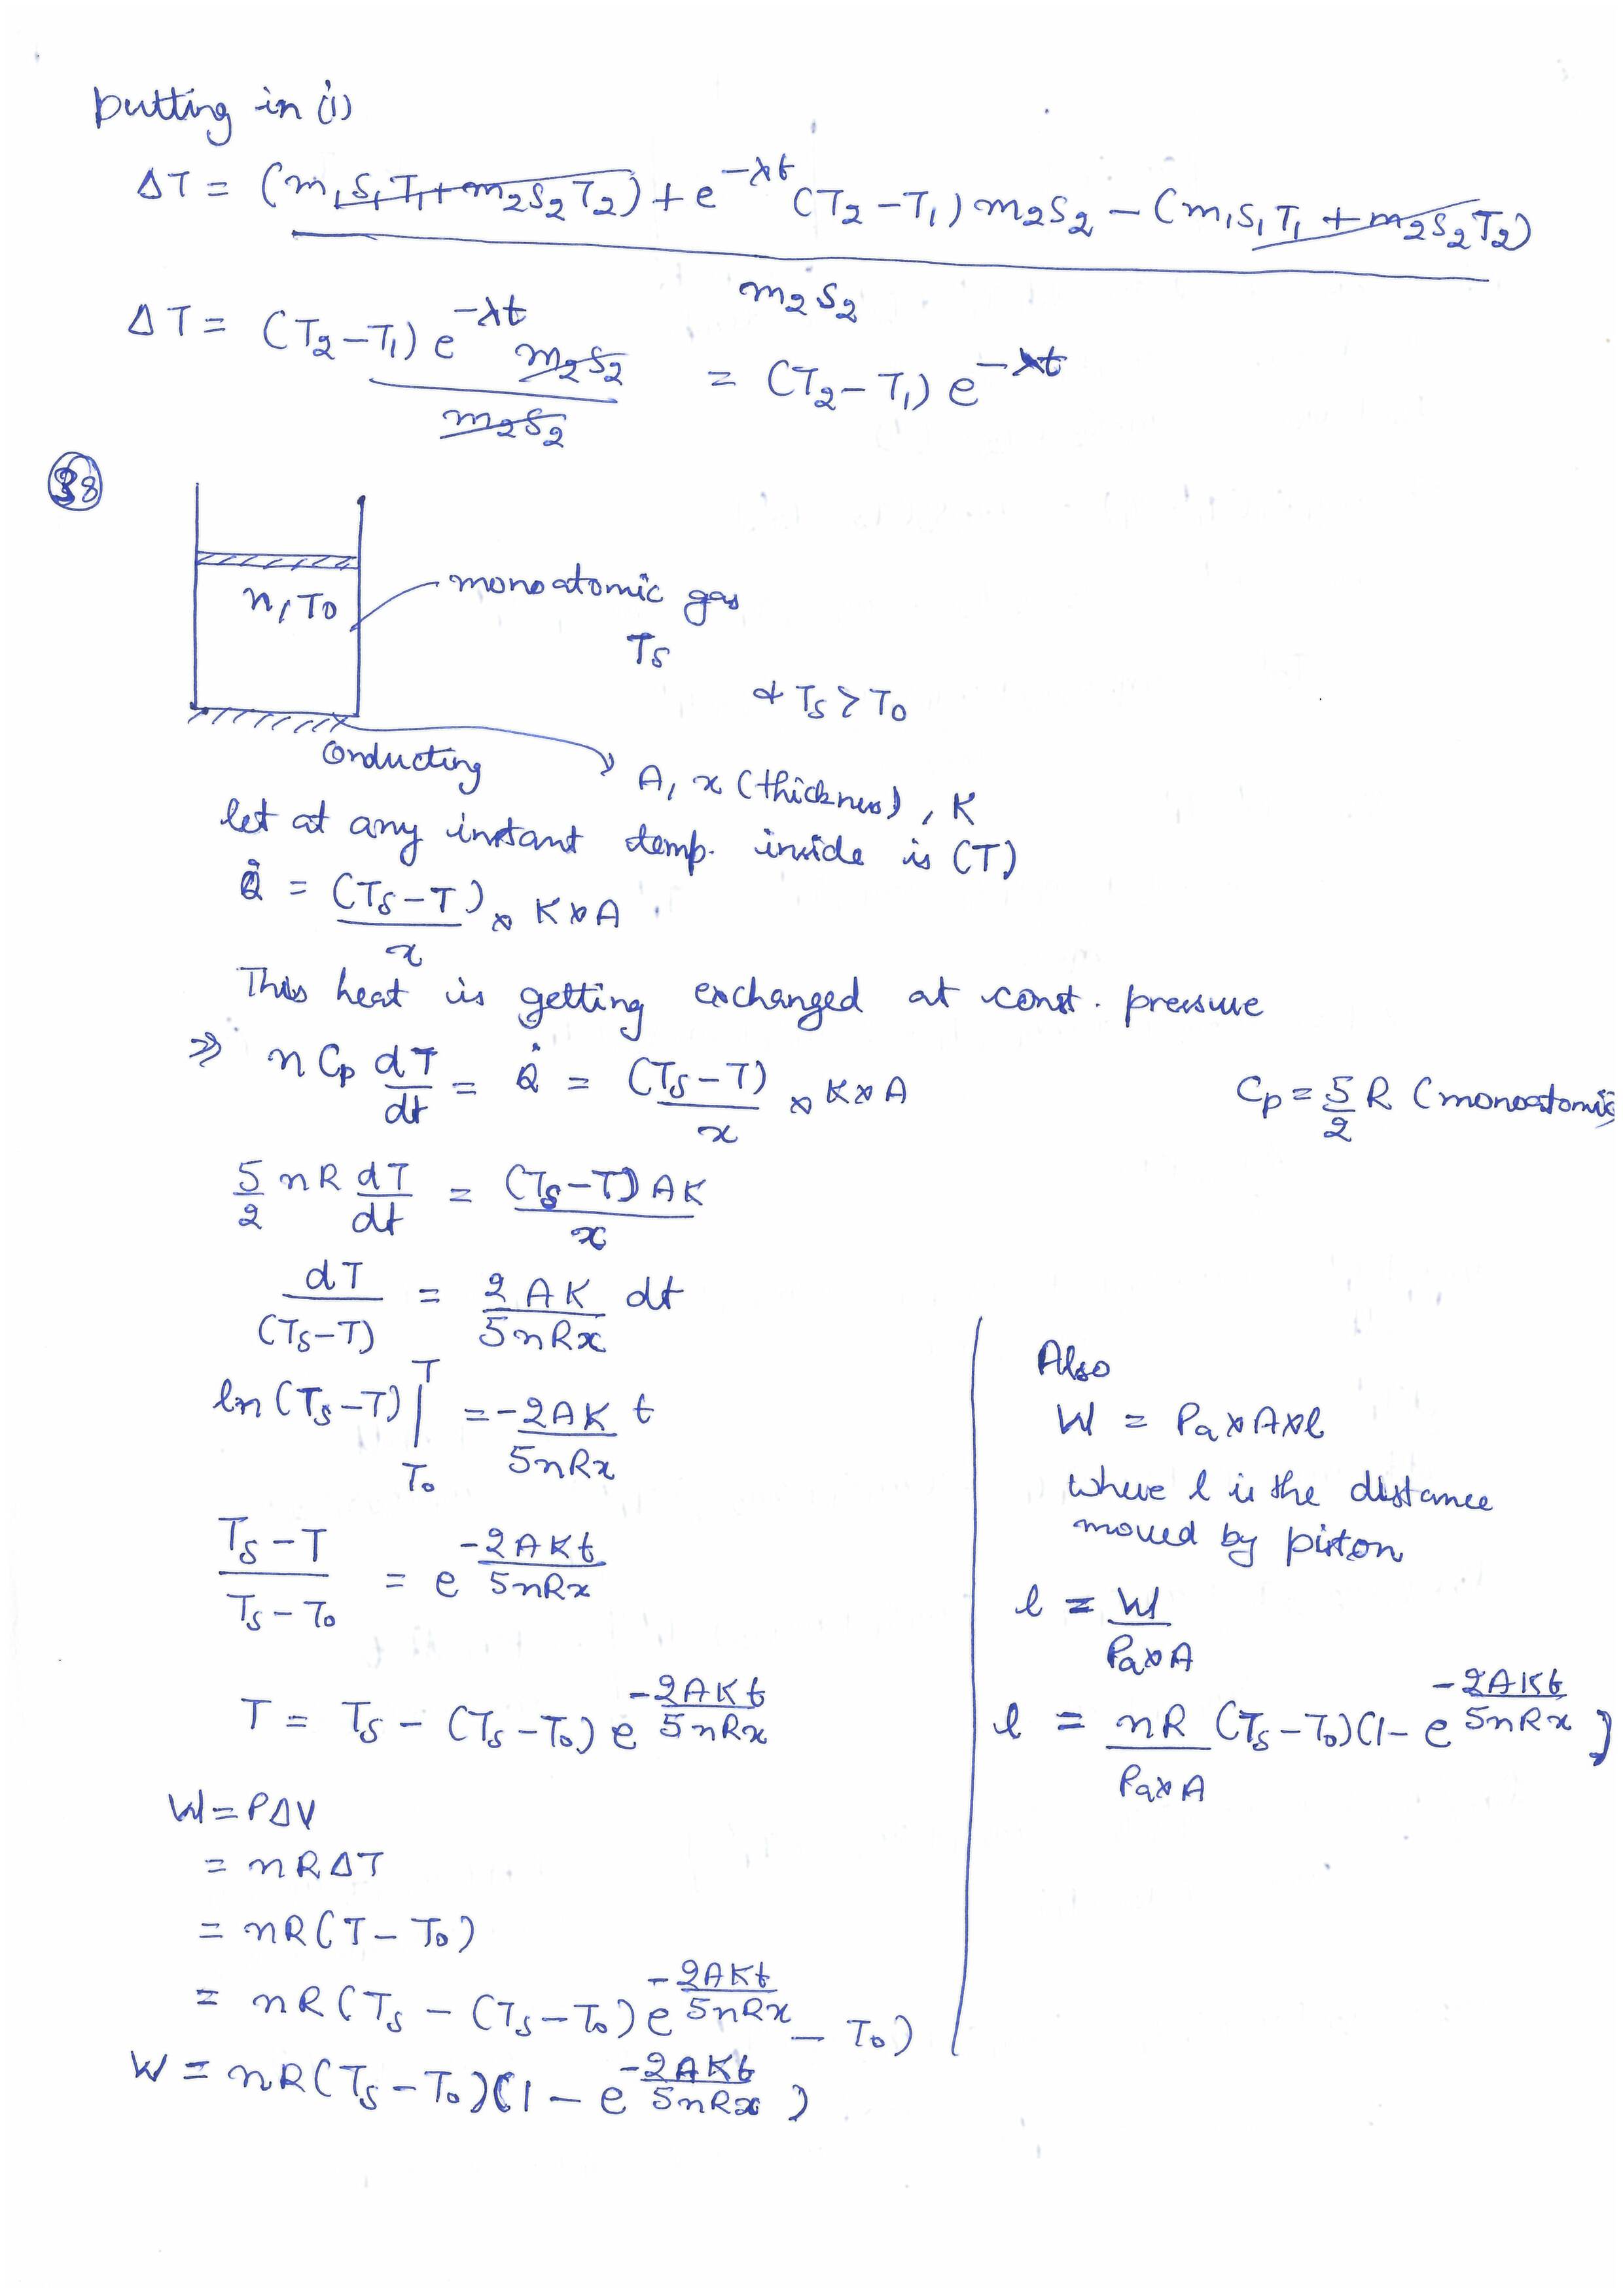 putting in (i)
ΔT = (m₁S₁T₁ + m₂S₂T₂) + e^{-λt} (T₂ - T₁) m₂S₂ - (m₁S₁T₁ + m₂S₂T₂)
m₂S₂
ΔT = (T₂ - T₁) e^{-λt} m₂S₂ / m₂S₂ = (T₂ - T₁) e^{-λt}
38
n, T₀
monoatomic gas
Ts
& Ts > T₀
Conducting
A, x (thickness), K
let at any instant temp. inside is (T)
Q̇ = (Ts - T)/x × K × A
This heat is getting exchanged at const. pressure
⇒ n Cp dT/dt = Q̇ = (Ts - T)/x × K × A
Cp = 5/2 R (monoatomic
5/2 nR dT/dt = (Ts - T) AK / x
dT/(Ts - T) = 2AK/5nRx dt
ln (Ts - T) |_{T₀}^{T} = -2AK/5nRx t
(Ts - T)/(Ts - T₀) = e^{-2AKt/5nRx}
T = Ts - (Ts - T₀) e^{-2AKt/5nRx}
W = PΔV
= nRΔT
= nR(T - T₀)
= nR(Ts - (Ts - T₀) e^{-2AKt/5nRx} - T₀)
W = nR(Ts - T₀)(1 - e^{-2AKt/5nRx})
Also
W = Pa × A × l
where l is the distance
moved by piston
l = W/Pa × A
l = nR/Pa × A (Ts - T₀)(1 - e^{-2AKt/5nRx})